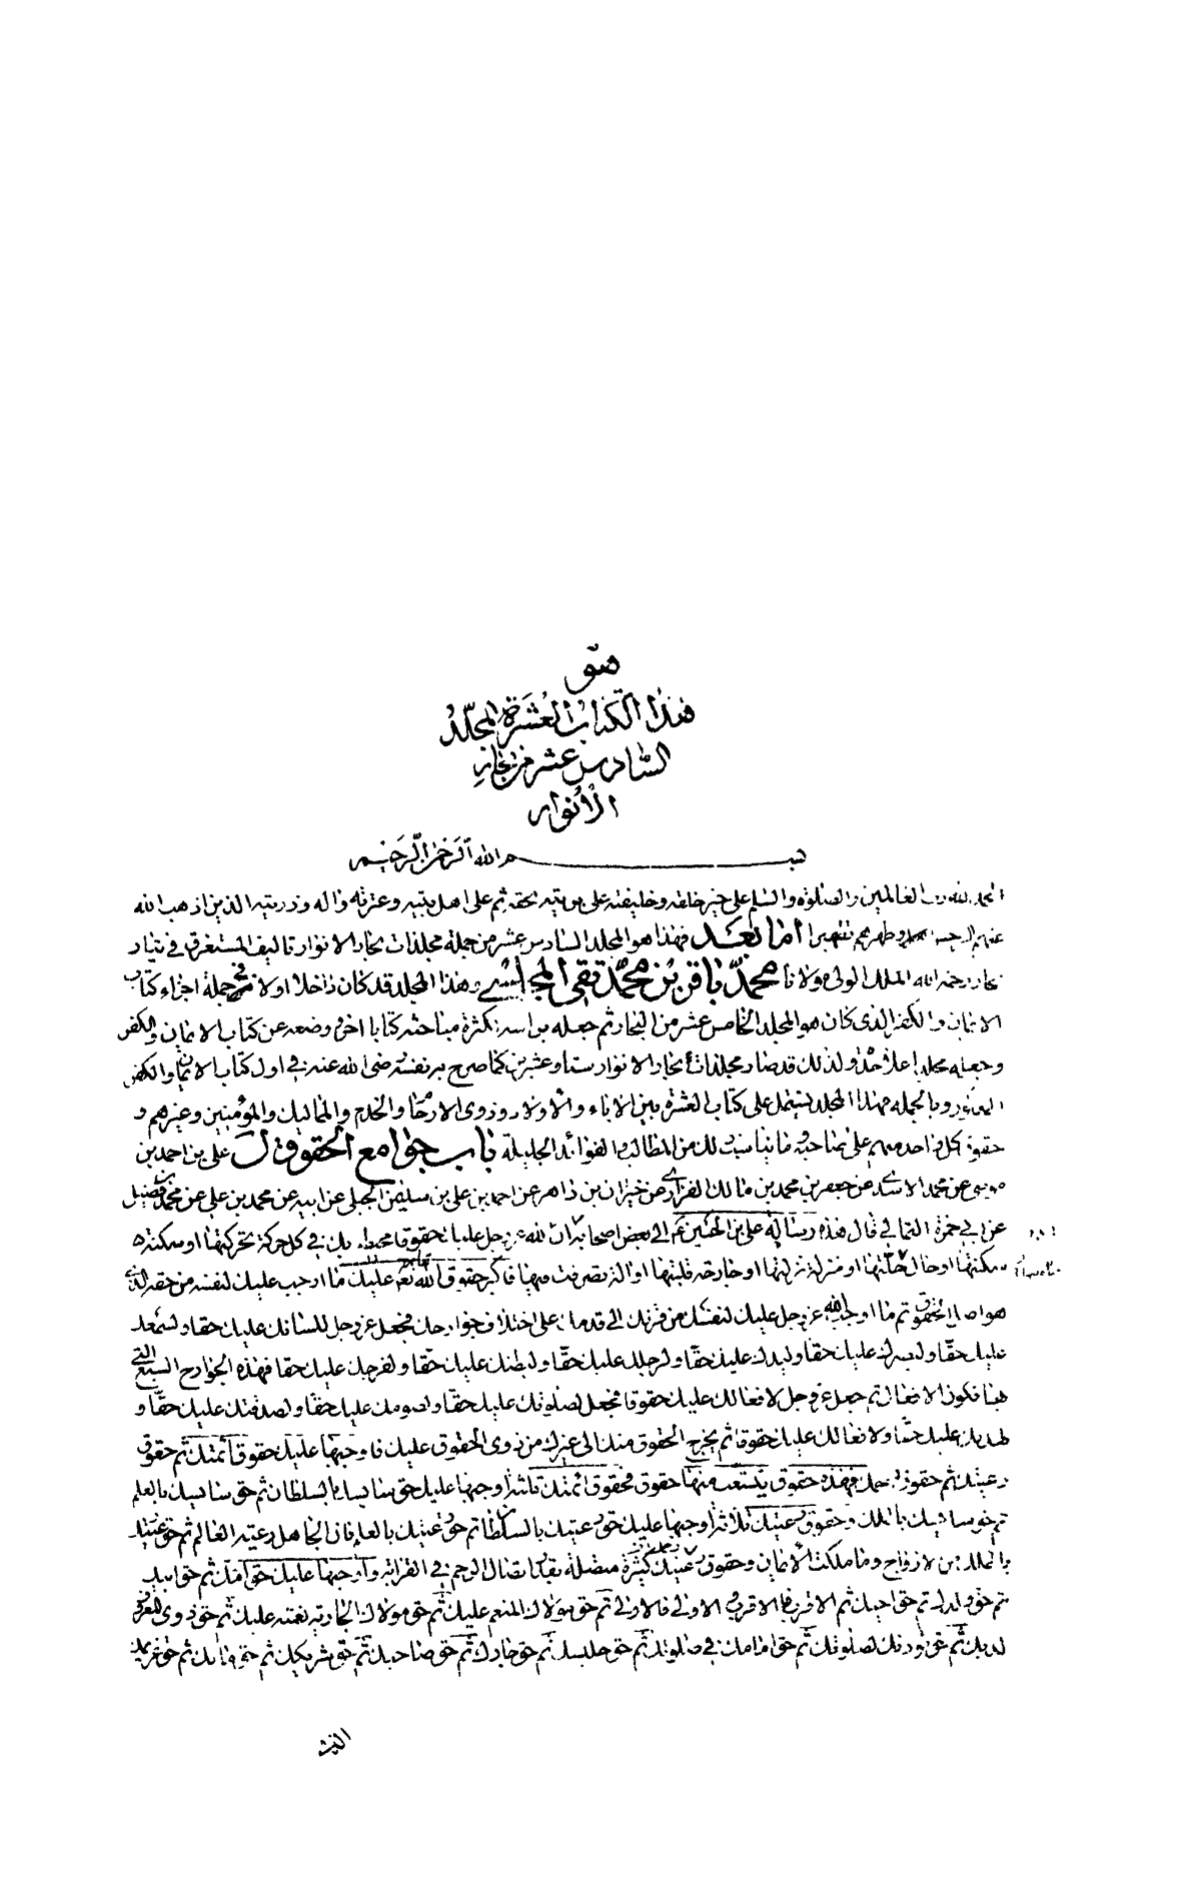 هو
هذا كتاب العشرة المجلد
السادس عشر من بحار
الأنوار
بسم الله الرحمن الرحيم
الحمد لله رب العالمين والصلوة والسلم على خير خلقه وخليفته على بريته بحقه ثم على اهل بيته وعترته واله وذريته الذين اذهب الله
عنهم الرجس وطهرهم تطهيرا اما بعد فهذا هو المجلد السادس عشر من جملة مجلدات بحار الانوار تاليف المستغرق في تيار
بحار رحمة الله الملك الولى مولانا محمد باقر بن محمد تقى المجلسي وهذا المجلد قد كان داخلا اولا في جملة اجزاء كتاب
الايمان والكفر الذى كان هو المجلد الخامس عشر من البحار ثم جعله براسه لكثرة مباحثه كتابا اخر ووضعه عن كتاب الايمان والكفر
وجعله مجلدا علاحدة ولذلك قد صار مجلدات بحار الانوار ستا وعشرين كما صرح به نفسه رضى الله عنه في اول كتاب الايمان والكفر
المذكور وبالجملة فهذا المجلد يشتمل على كتاب العشرة بين الاباء والاولاد وذوى الارحام والخدم والمماليك والمؤمنين وغيرهم و
حقوق كل واحد منهم على صاحبه وما يناسب ذلك من المطالب والفوائد الجليلة باب جوامع الحقوق ل على بن احمد بن
موسى عن محمد الاسدى عن جعفر بن محمد بن مالك الفزارى عن خيران بن داهر عن احمد بن على بن سليمن الجبلى عن ابيه عن محمد بن على عن محمد بن فضيل
عن ابي حمزة الثمالى قال هذه رسالة على بن الحسين ع الى بعض اصحابه ان لله عز وجل عليك حقوقا محيطة بك في كل حركة تحركتها او سكنة
سكنتها او حال حلتها او منزلة نزلتها او جارحة قلبتها او الة تصرفت فيها فاكبر حقوق الله تعالى عليك ما اوجب عليك لنفسه من حقه الذى
هو اصل الحقوق ثم ما اوجب الله عز وجل عليك لنفسك من قرنك الى قدمك على اختلاف جوارحك فجعل عز وجل للسانك عليك حقا ولسمعك
عليك حقا ولبصرك عليك حقا وليدك عليك حقا ولرجلك عليك حقا ولبطنك عليك حقا ولفرجك عليك حقا فهذه الجوارح السبع التي
بها تكون الافعال ثم جعل عز وجل لافعالك عليك حقوقا فجعل لصلوتك عليك حقا ولصومك عليك حقا ولصدقتك عليك حقا و
لهديك عليك حقا ولافعالك عليك حقوقا ثم يخرج الحقوق منك الى غيرك من ذوى الحقوق عليك فاوجبها عليك حقوق ائمتك ثم حقوق
رعيتك ثم حقوق رحمك فهذه حقوق يتشعب منها حقوق فحقوق ائمتك ثلثة اوجبها عليك حق سايسك بالسلطان ثم حق سايسك بالعلم
ثم حق سايسك بالملك وحقوق رعيتك ثلاثة اوجبها عليك حق رعيتك بالسلطان ثم حق رعيتك بالعلم فان الجاهل رعية العالم ثم حق رعيتك
بالملك من الازواج وما ملكت الايمان وحقوق رعيتك كثيرة متصلة بقدر اتصال الرحم في القرابة واوجبها عليك حق امك ثم حق ابيك
ثم حق ولدك ثم حق اخيك ثم الاقرب فالاقرب الاولى فالاولى ثم حق مولاك المنعم عليك ثم حق مولاك الجارية نعمته عليك ثم حق ذوى المعروف
لديك ثم حق مؤذنك لصلوتك ثم حق امامك في صلوتك ثم حق جليسك ثم حق جارك ثم حق صاحبك ثم حق شريكك ثم حق مالك ثم حق غريمك
الذى